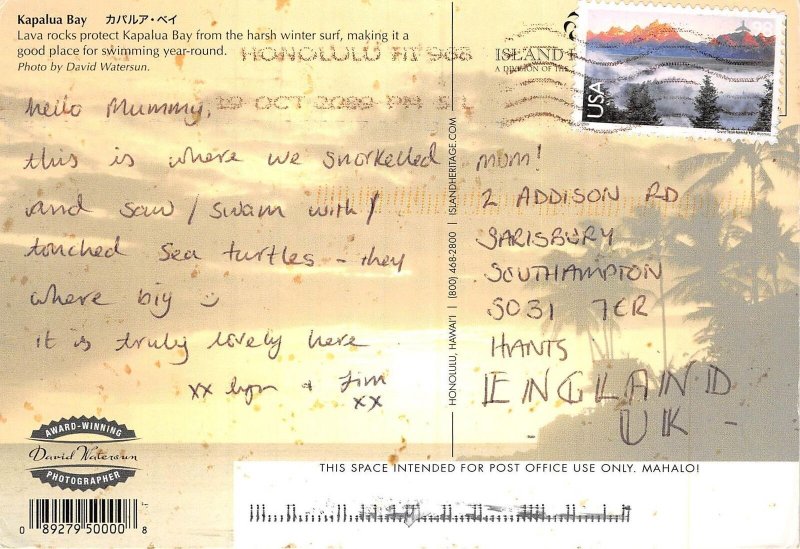 Kapalua Bay カパルア・ベイ
Lava rocks protect Kapalua Bay from the harsh winter surf, making it a
good place for swimming year-round.
Photo by David Watersun.
HONOLULU HI 968
ISLAND
A DIVISION OF
USA
hello Mummy,
this is where we snorkelled
and saw / swam with /
touched sea turtles - they
where big
it is truly lovely here
xx & Jim
xx
HONOLULU, HAWAI'I | (800) 468-2800 | ISLANDHERITAGE.COM
MUM!
2 ADDISON RD
SARISBURY
SOUTHAMPTON
SO31 7ER
HANTS
ENGLAND
- UK -
AWARD-WINNING
David Watersun
PHOTOGRAPHER
THIS SPACE INTENDED FOR POST OFFICE USE ONLY. MAHALO!
0 89279 50000 8